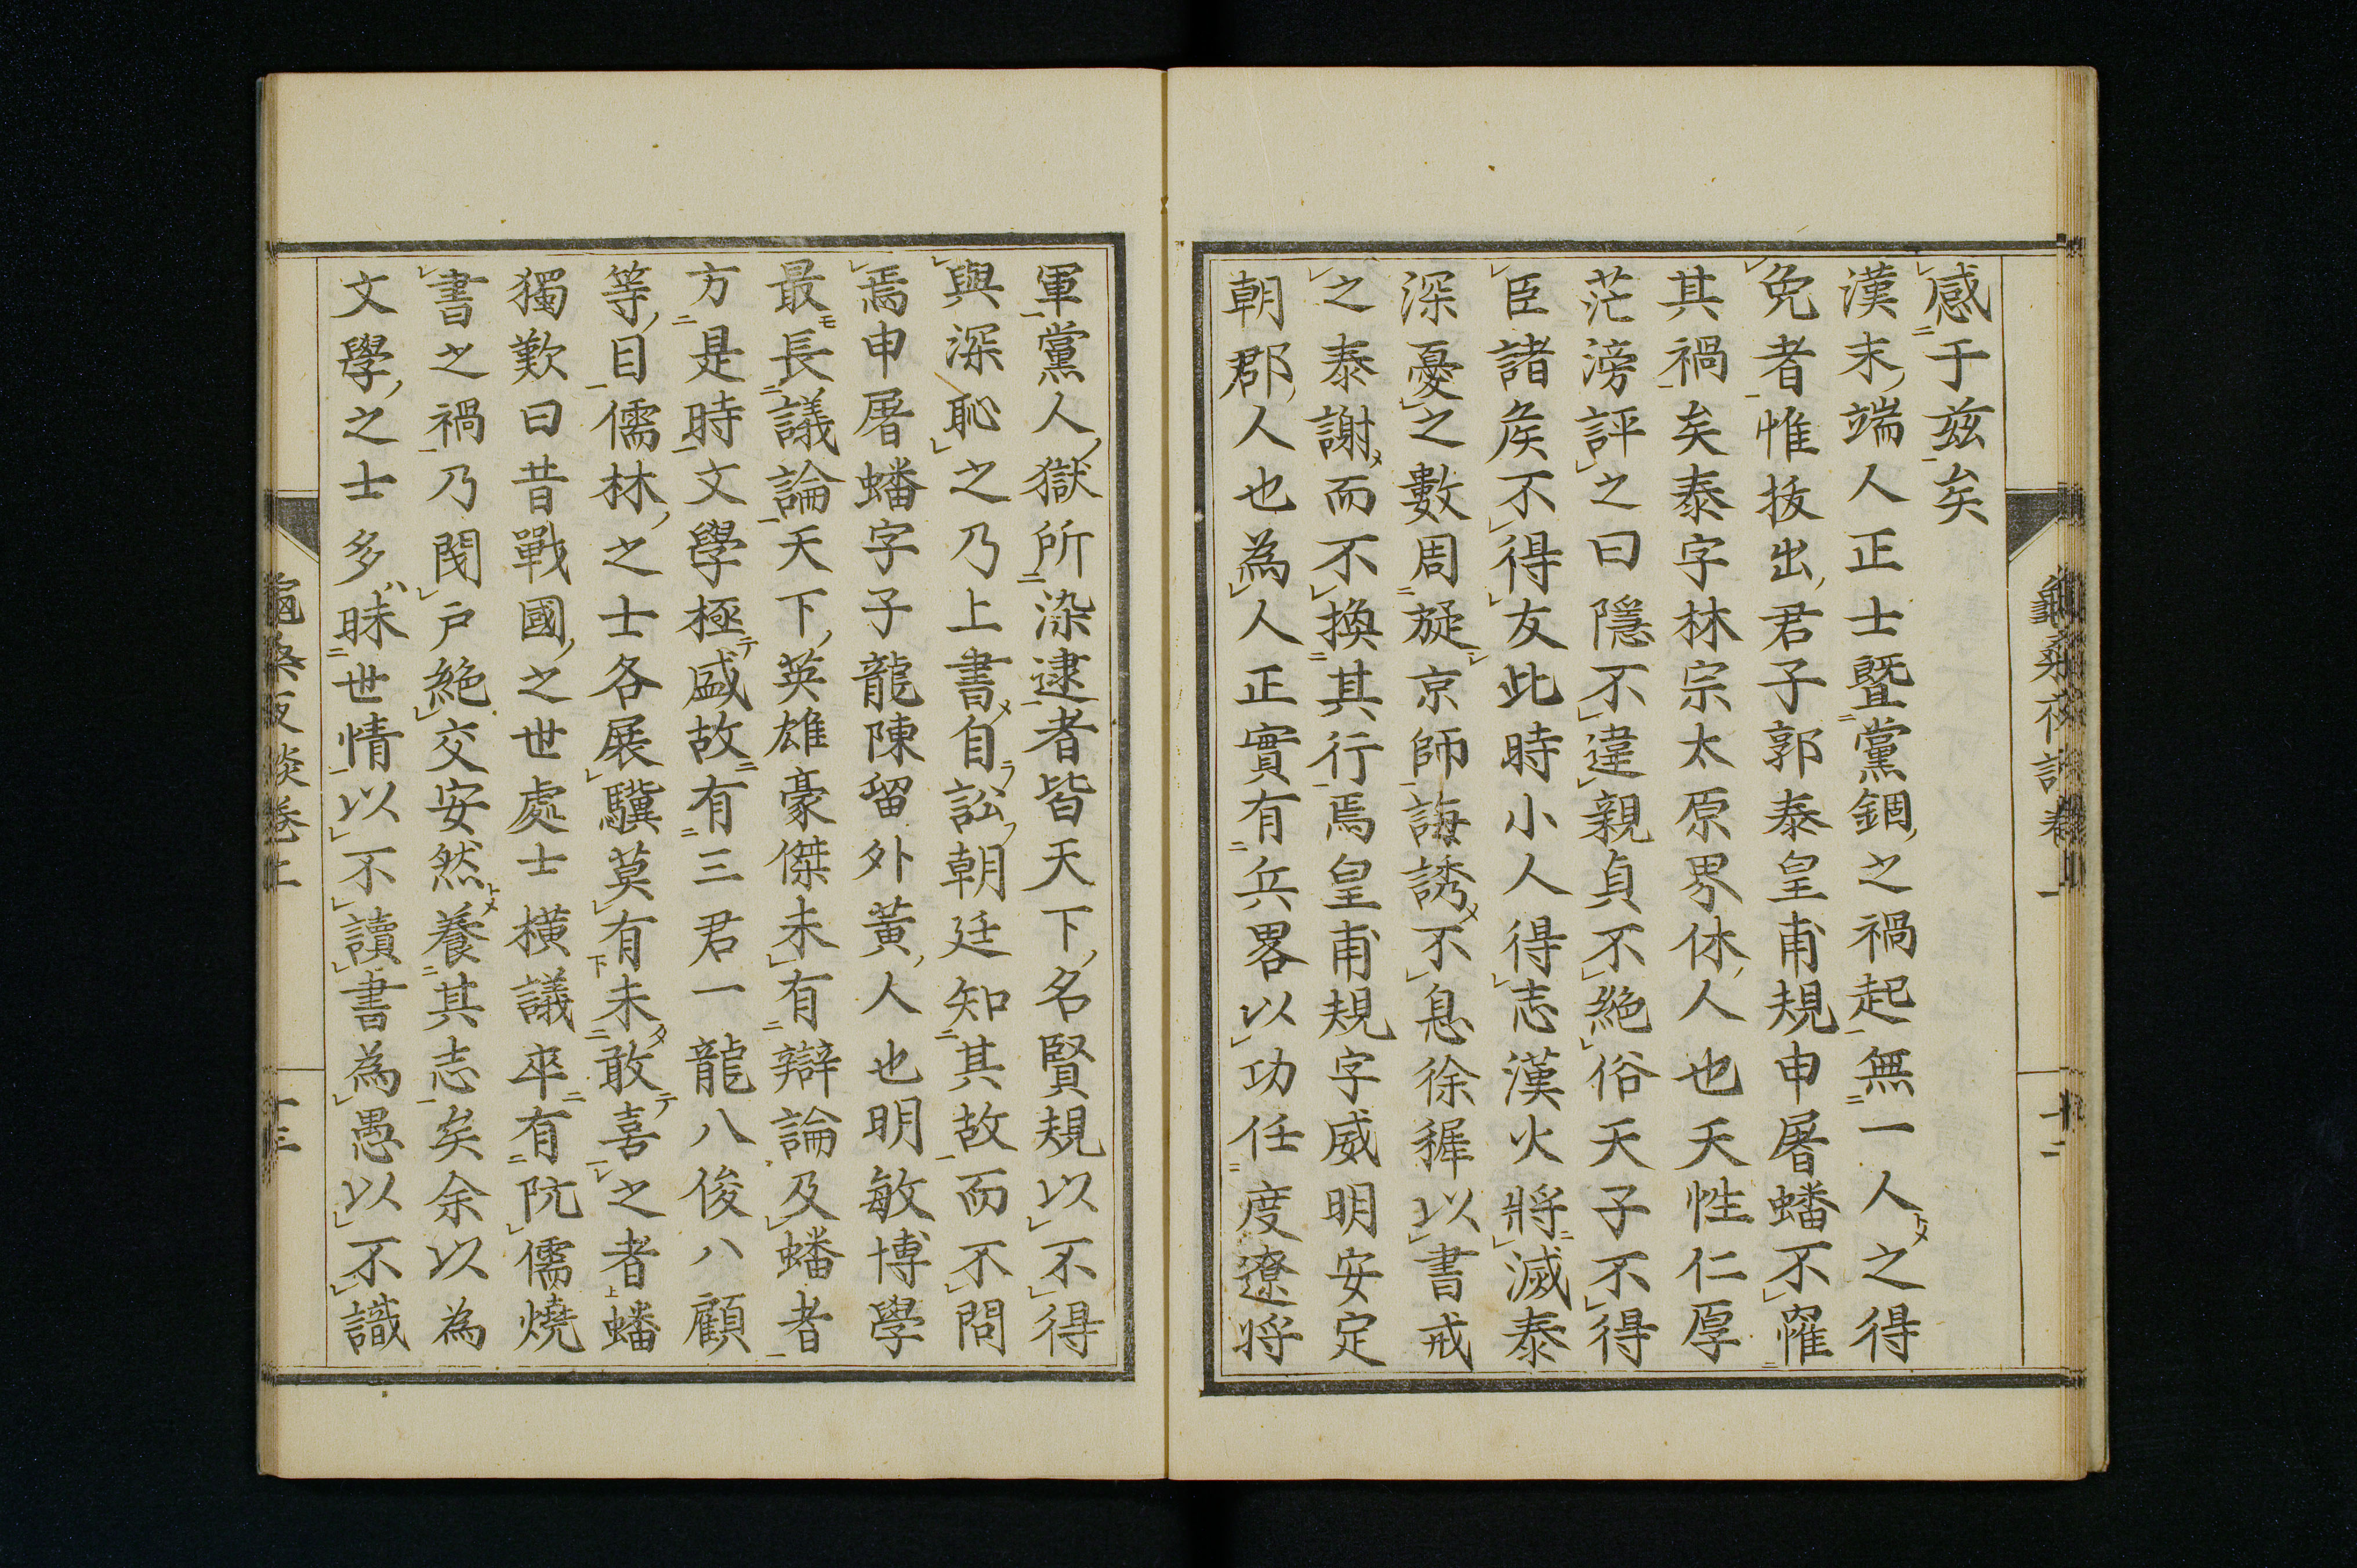 感于茲矣
漢末端人正士曁黨錮之禍起無一人之得
免者惟拔出君子郭泰皇甫規申屠蟠不罹
其禍矣泰字林宗太原界休人也天性仁厚
茫滂評之曰隱不違親貞不絶俗天子不得
臣諸矦不得友此時小人得志漢火將滅泰
深憂之數周旋京師誨誘不息徐穉以書戒
之泰謝而不換其行焉皇甫規字威明安定
朝郡人也為人正實有兵畧以功任度遼将
軍黨人獄所染逮者皆天下名賢規以不得
與深恥之乃上書自訟朝廷知其故而不問
焉申屠蟠字子龍陳留外黃人也明敏博學
最長議論天下英雄豪傑未有辯論及蟠者
方是時文學極盛故有三君一龍八俊八顧
等目儒林之士各展驥莫有未敢喜之者蟠
獨歎曰昔戰國之世處士橫議卒有阬儒燒
書之禍乃閔戶絶交安然養其志矣余以為
文學之士多眛世情以不讀書為愚以不識